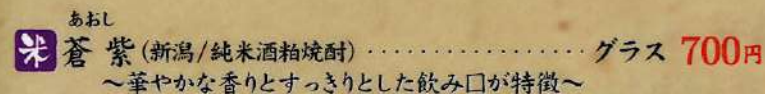 あおし
米 蒼 紫 (新潟/純米酒粕焼酎) ················· グラス 700円
〜華やかな香りとすっきりとした飲み口が特徴〜